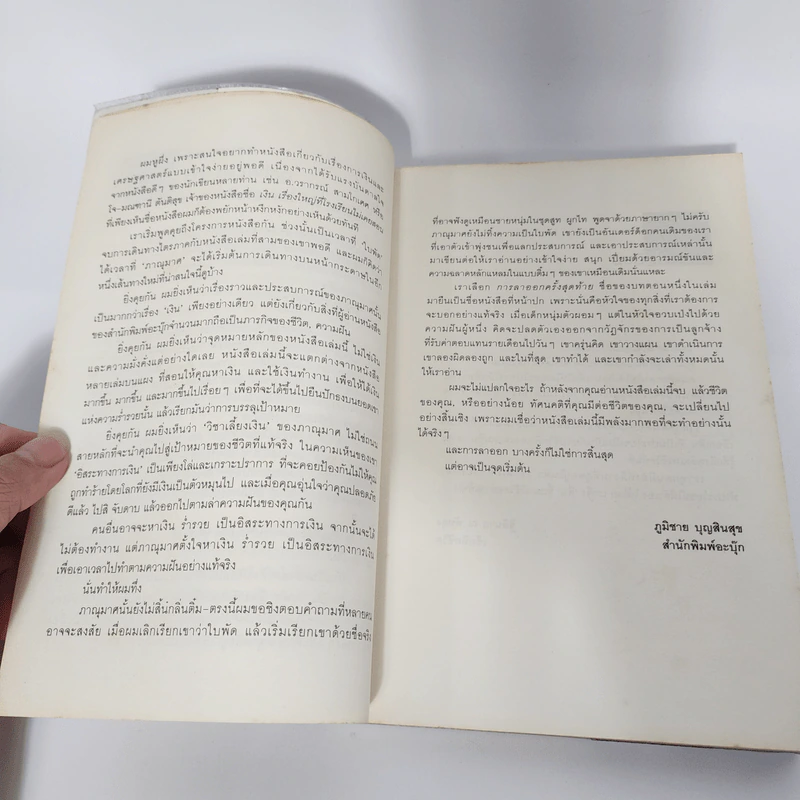 ผมหูผึ่ง เพราะสนใจอยากทำหนังสือเกี่ยวกับเรื่องการเงินและ
เศรษฐศาสตร์แบบเข้าใจง่ายอยู่พอดี เนื่องจากได้รับแรงบันดาลใจ
จากหนังสือดีๆ ของนักเขียนหลายท่าน เช่น อ.วรากรณ์ สามโกเศศ หรือ
โจ-มณฑานี ตันติสุข เจ้าของหนังสือชื่อ เงิน เรื่องใหญ่ที่โรงเรียนไม่เคยสอน
ที่เพียงเห็นชื่อหนังสือผมก็ต้องพยักหน้าหงึกหงักอย่างเห็นด้วยทันที
เราเริ่มพูดคุยถึงโครงการหนังสือกัน ช่วงนั้นเป็นเวลาที่ 'ใบพัด'
จบการเดินทางไตรภาคกับหนังสือเล่มที่สามของเขาพอดี และผมก็คิดว่า
ได้เวลาที่ 'ภาณุมาศ' จะได้เริ่มต้นการเดินทางบนหน้ากระดาษในอีก
หนึ่งเส้นทางใหม่ที่น่าสนใจนี้ดูบ้าง
ยิ่งคุยกัน ผมยิ่งเห็นว่าเรื่องราวและประสบการณ์ของภาณุมาศนั้น
เป็นมากกว่าเรื่อง 'เงิน' เพียงอย่างเดียว แต่ยังเกี่ยวกับสิ่งที่ผู้อ่านหนังสือ
ของสำนักพิมพ์อะบุ๊กจำนวนมากถือเป็นภารกิจของชีวิต, ความฝัน
ยิ่งคุยกัน ผมยิ่งเห็นว่าจุดหมายหลักของหนังสือเล่มนี้ ไม่ใช่เงิน
และความมั่งคั่งแต่อย่างใดเลย หนังสือเล่มนี้จะแตกต่างจากหนังสือ
หลายเล่มบนแผง ที่สอนให้คุณหาเงิน และใช้เงินทำงาน เพื่อให้ได้เงิน
มากขึ้น มากขึ้น และมากขึ้นไปเรื่อยๆ เพื่อที่จะได้ขึ้นไปยืนปักธงบนยอดเขา
แห่งความร่ำรวยนั้น แล้วเรียกมันว่าการบรรลุเป้าหมาย
ยิ่งคุยกัน ผมยิ่งเห็นว่า 'วิชาเลี้ยงเงิน' ของภาณุมาศ ไม่ใช่ถนน
สายหลักที่จะนำคุณไปสู่เป้าหมายของชีวิตที่แท้จริง ในความเห็นของเขา
'อิสระทางการเงิน' เป็นเพียงโล่และเกราะปราการ ที่จะคอยป้องกันไม่ให้คุณ
ถูกทำร้ายโดยโลกที่ยังมีเงินเป็นตัวหมุนไป และเมื่อคุณอุ่นใจว่าคุณปลอดภัย
ดีแล้ว ไปสิ จับดาบ แล้วออกไปตามล่าความฝันของคุณกัน
คนอื่นอาจจะหาเงิน ร่ำรวย เป็นอิสระทางการเงิน จากนั้นจะได้
ไม่ต้องทำงาน แต่ภาณุมาศตั้งใจหาเงิน ร่ำรวย เป็นอิสระทางการเงิน
เพื่อเอาเวลาไปทำตามความฝันอย่างแท้จริง
นั่นทำให้ผมทึ่ง
ภาณุมาศนั้นยังไม่สิ้นกลิ่นติ๋ม-ตรงนี้ผมขอชิงตอบคำถามที่หลายคน
อาจจะสงสัย เมื่อผมเลิกเรียกเขาว่าใบพัด แล้วเริ่มเรียกเขาด้วยชื่อจริง
ที่อาจฟังดูเหมือนชายหนุ่มในชุดสูท ผูกไท พูดจาด้วยภาษายากๆ ไม่ครับ
ภาณุมาศยังไม่ทิ้งความเป็นใบพัด เขายังเป็นอันเดอร์ด็อกคนเดิมของเรา
ที่เอาตัวเข้าพุ่งชนเพื่อแลกประสบการณ์ และเอาประสบการณ์เหล่านั้น
มาเขียนต่อให้เราอ่านอย่างเข้าใจง่าย สนุก เปี่ยมด้วยอารมณ์ขันและ
ความฉลาดหลักแหลมในแบบติ๋มๆ ของเขาเหมือนเดิมนั่นแหละ
เราเลือก การลาออกครั้งสุดท้าย ชื่อของบทตอนหนึ่งในเล่ม
มายืนเป็นชื่อหนังสือที่หน้าปก เพราะนั่นคือหัวใจของทุกสิ่งที่เราต้องการ
จะบอกอย่างแท้จริง เมื่อเด็กหนุ่มตัวผอมๆ แต่ในหัวใจอวบเป่งไปด้วย
ความฝันผู้หนึ่ง คิดจะปลดตัวเองออกจากวัฏจักรของการเป็นลูกจ้าง
ที่รับค่าตอบแทนรายเดือนไปวันๆ เขาครุ่นคิด เขาวางแผน เขาดำเนินการ
เขาลองผิดลองถูก และในที่สุด เขาทำได้ และเขากำลังจะเล่าทั้งหมดนั้น
ให้เราอ่าน
ผมจะไม่แปลกใจอะไร ถ้าหลังจากคุณอ่านหนังสือเล่มนี้จบ แล้วชีวิต
ของคุณ, หรืออย่างน้อย ทัศนคติที่คุณมีต่อชีวิตของคุณ, จะเปลี่ยนไป
อย่างสิ้นเชิง เพราะผมเชื่อว่าหนังสือเล่มนี้มีพลังมากพอที่จะทำอย่างนั้น
ได้จริงๆ
และการลาออก บางครั้งก็ไม่ใช่การสิ้นสุด
แต่อาจเป็นจุดเริ่มต้น
ภูมิชาย บุญสินสุข
สำนักพิมพ์อะบุ๊ก